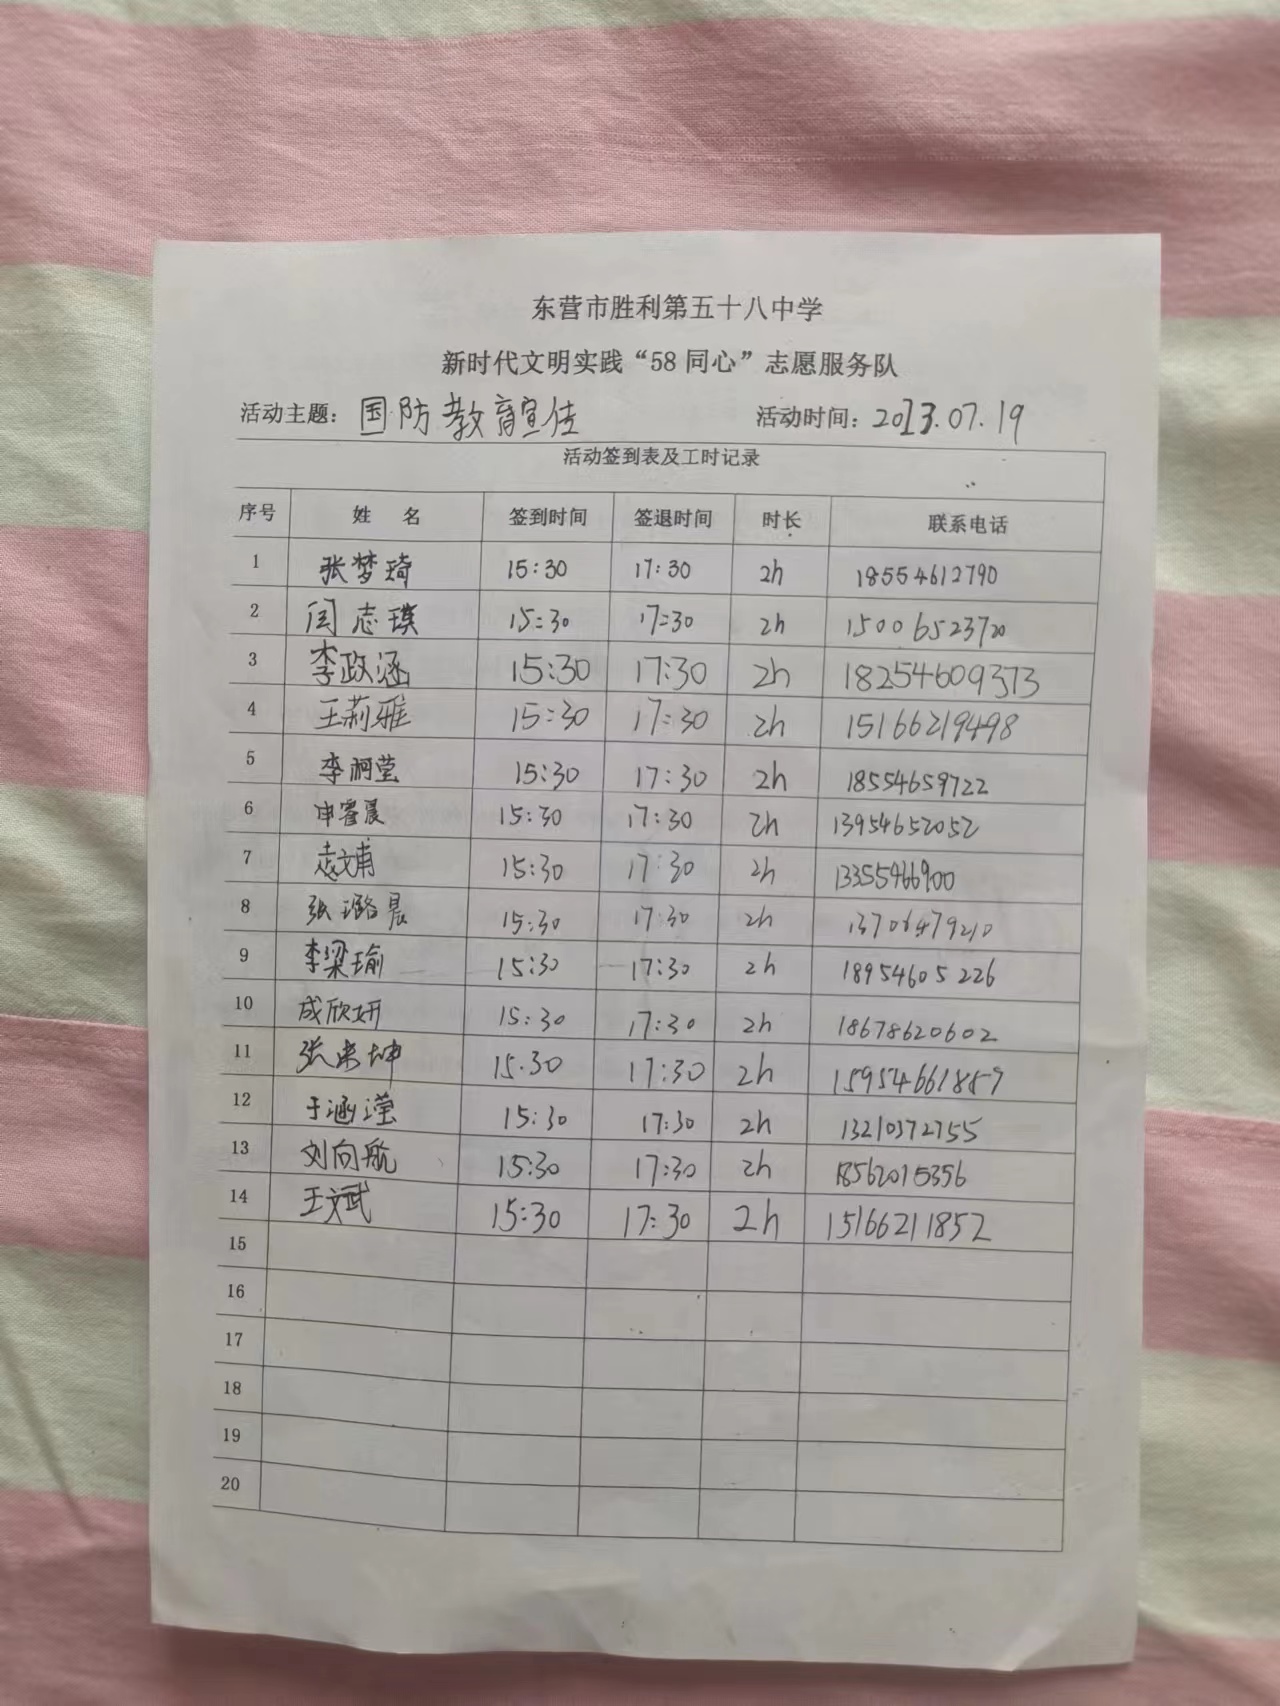 东营市胜利第五十八中学
新时代文明实践“58同心”志愿服务队
活动主题：国防教育宣传 活动时间：2023.07.19
活动签到表及工时记录
序号 姓 名 签到时间 签退时间 时长 联系电话
1 张梦琦 15:30 17:30 2h 18554612790
2 闫志璞 15:30 17:30 2h 15006523720
3 李政涵 15:30 17:30 2h 18254609373
4 王莉雅 15:30 17:30 2h 15166219498
5 李柯莹 15:30 17:30 2h 18554659722
6 申睿晨 15:30 17:30 2h 13954652052
7 15:30 17:30 2h 13355466900
8 张璐晨 15:30 17:30 2h 13706479210
9 李梁瑜 15:30 17:30 2h 18954605226
10 成欣妍 15:30 17:30 2h 18678620602
11 15.30 17:30 2h 15954661857
12 于涵滢 15:30 17:30 2h 13210372755
13 刘向航 15:30 17:30 2h 18562015356
14 王文武 15:30 17:30 2h 15166211852
15
16
17
18
19
20